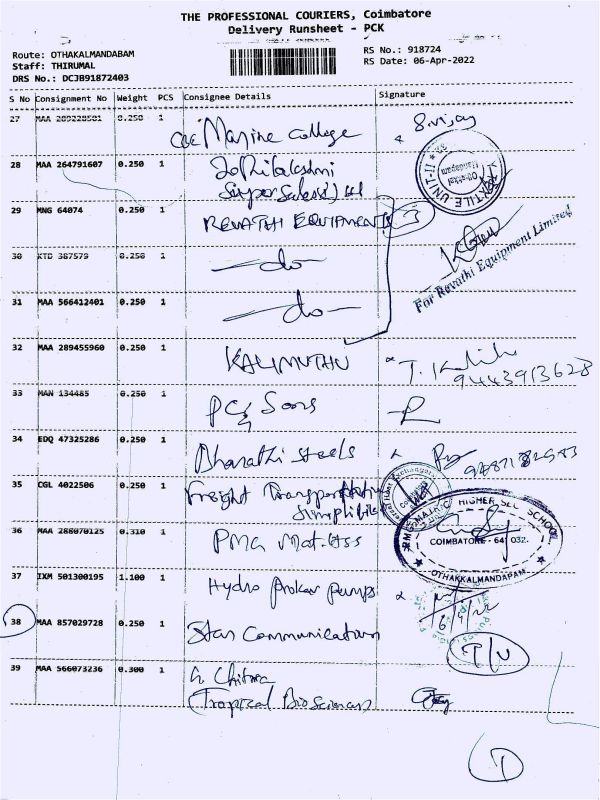 THE PROFESSIONAL COURIERS, Coimbatore
Delivery Runsheet - PCK
Route: OTHAKALMANDABAM
Staff: THIRUMAL
DRS No.: DCJB91872403
RS No.: 918724
RS Date: 06-Apr-2022
S No Consignment No Weight PCS Consignee Details Signature
27 MAA 289228581 0.250 1 CBE Marine College S.vijay
28 MAA 264791607 0.250 1 Jothilakshmi
29 MNG 64074 0.250 1 REVATHI EQUIPMENTS 3
For Revathi Equipment Limited
30 KTD 387579 0.250 1 -do-
31 MAA 566412401 0.250 1 -do-
32 MAA 289455960 0.250 1 KALIMUTHU
9443913628
33 MAN 134485 0.250 1 PCG Sons
34 EDQ 47325286 0.250 1 Bharathi Steels
35 CGL 4022506 0.250 1 Freight
36 MAA 288070125 0.310 1 PMG Mat.Hss
HIGHER SEC SCHOOL
COIMBATORE - 641 032.
OTHAKKALMANDAPAM
37 IXM 501300195 1.100 1 Hydro Prokav Pumps
6/4/22
38 MAA 857029728 0.250 1 Star Communication
T/U
39 MAA 566073236 0.300 1 G. Chitra
(Tropical Bio Sciences)
1